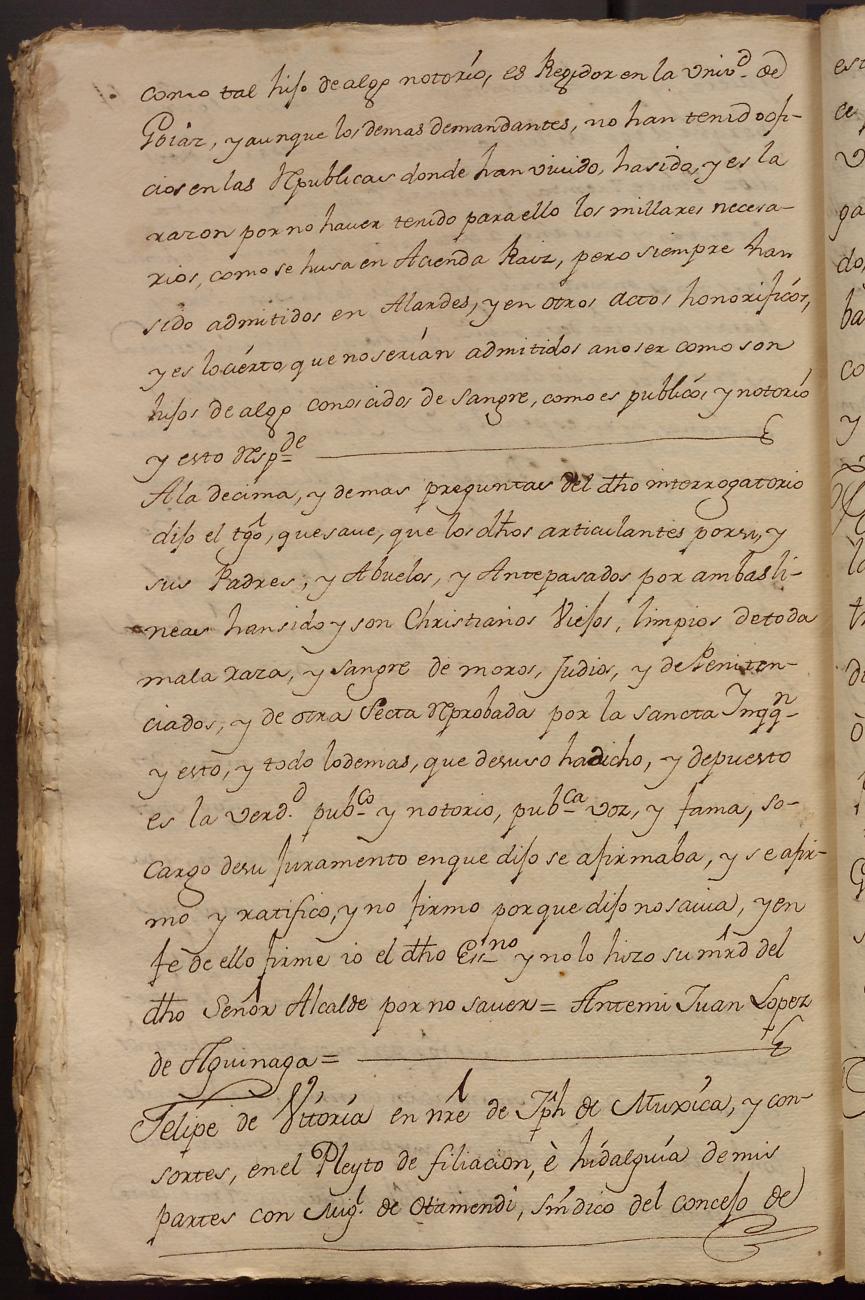 como tal hijo de algo notorio, es Regidor en la Univ.d de
Goiaz, y aunque los demas demandantes, no han tenido ofi-
cios en las Republicas donde han vivido, ha sido, y es la
razon por no haver tenido para ello los millares necesa-
rios, como se husa en Acienda Raiz, pero siempre han
sido admitidos en Alardes, y en otros actos honorificos,
y es lo cierto que no serian admitidos a no ser como son
hijos de algo conoscidos de sangre, como es publico, y notorio
y esto resp.de
A la decima, y demas preguntas del dho interrogatorio
dijo el tgo, que save, que los dhos articulantes por si, y
sus Padres, y Abuelos, y Antepasados por ambas li-
neas han sido y son Christianos Viejos, limpios de toda
mala raza, y sangre de moros, Judios, y de Peniten-
ciados, y de otra Secta reprobada por la sancta Inqq.n
y esto, y todo lo demas, que desuso ha dicho, y depuesto
es la verd.d pub.co y notorio, pub.ca voz, y fama, so-
cargo de su juramento en que dijo se afirmaba, y se afir-
mo y ratifico, y no firmo porque dijo no savia, y en
fe de ello firme io el dho Es.no y no lo hizo su mrd del
dho Señor Alcalde por no saver = Antemi Juan Lopez
de Aguinaga =
Felipe de Vitoria en nre de Jph de Muxica, y con-
sortes, en el Pleyto de filiacion, è hidalguia de mis
partes con Mig.l de Otamendi, Sindico del concejo de